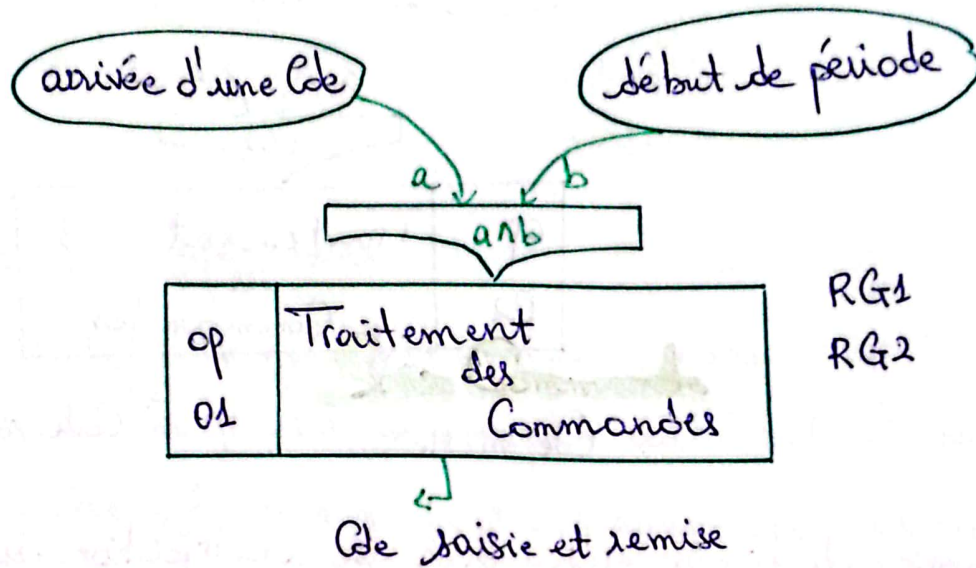 arrivée d'une Cde
début de période
a
b
a∧b
RG1
op
Traitement
RG2
des
01
Commandes
Cde saisie et remise